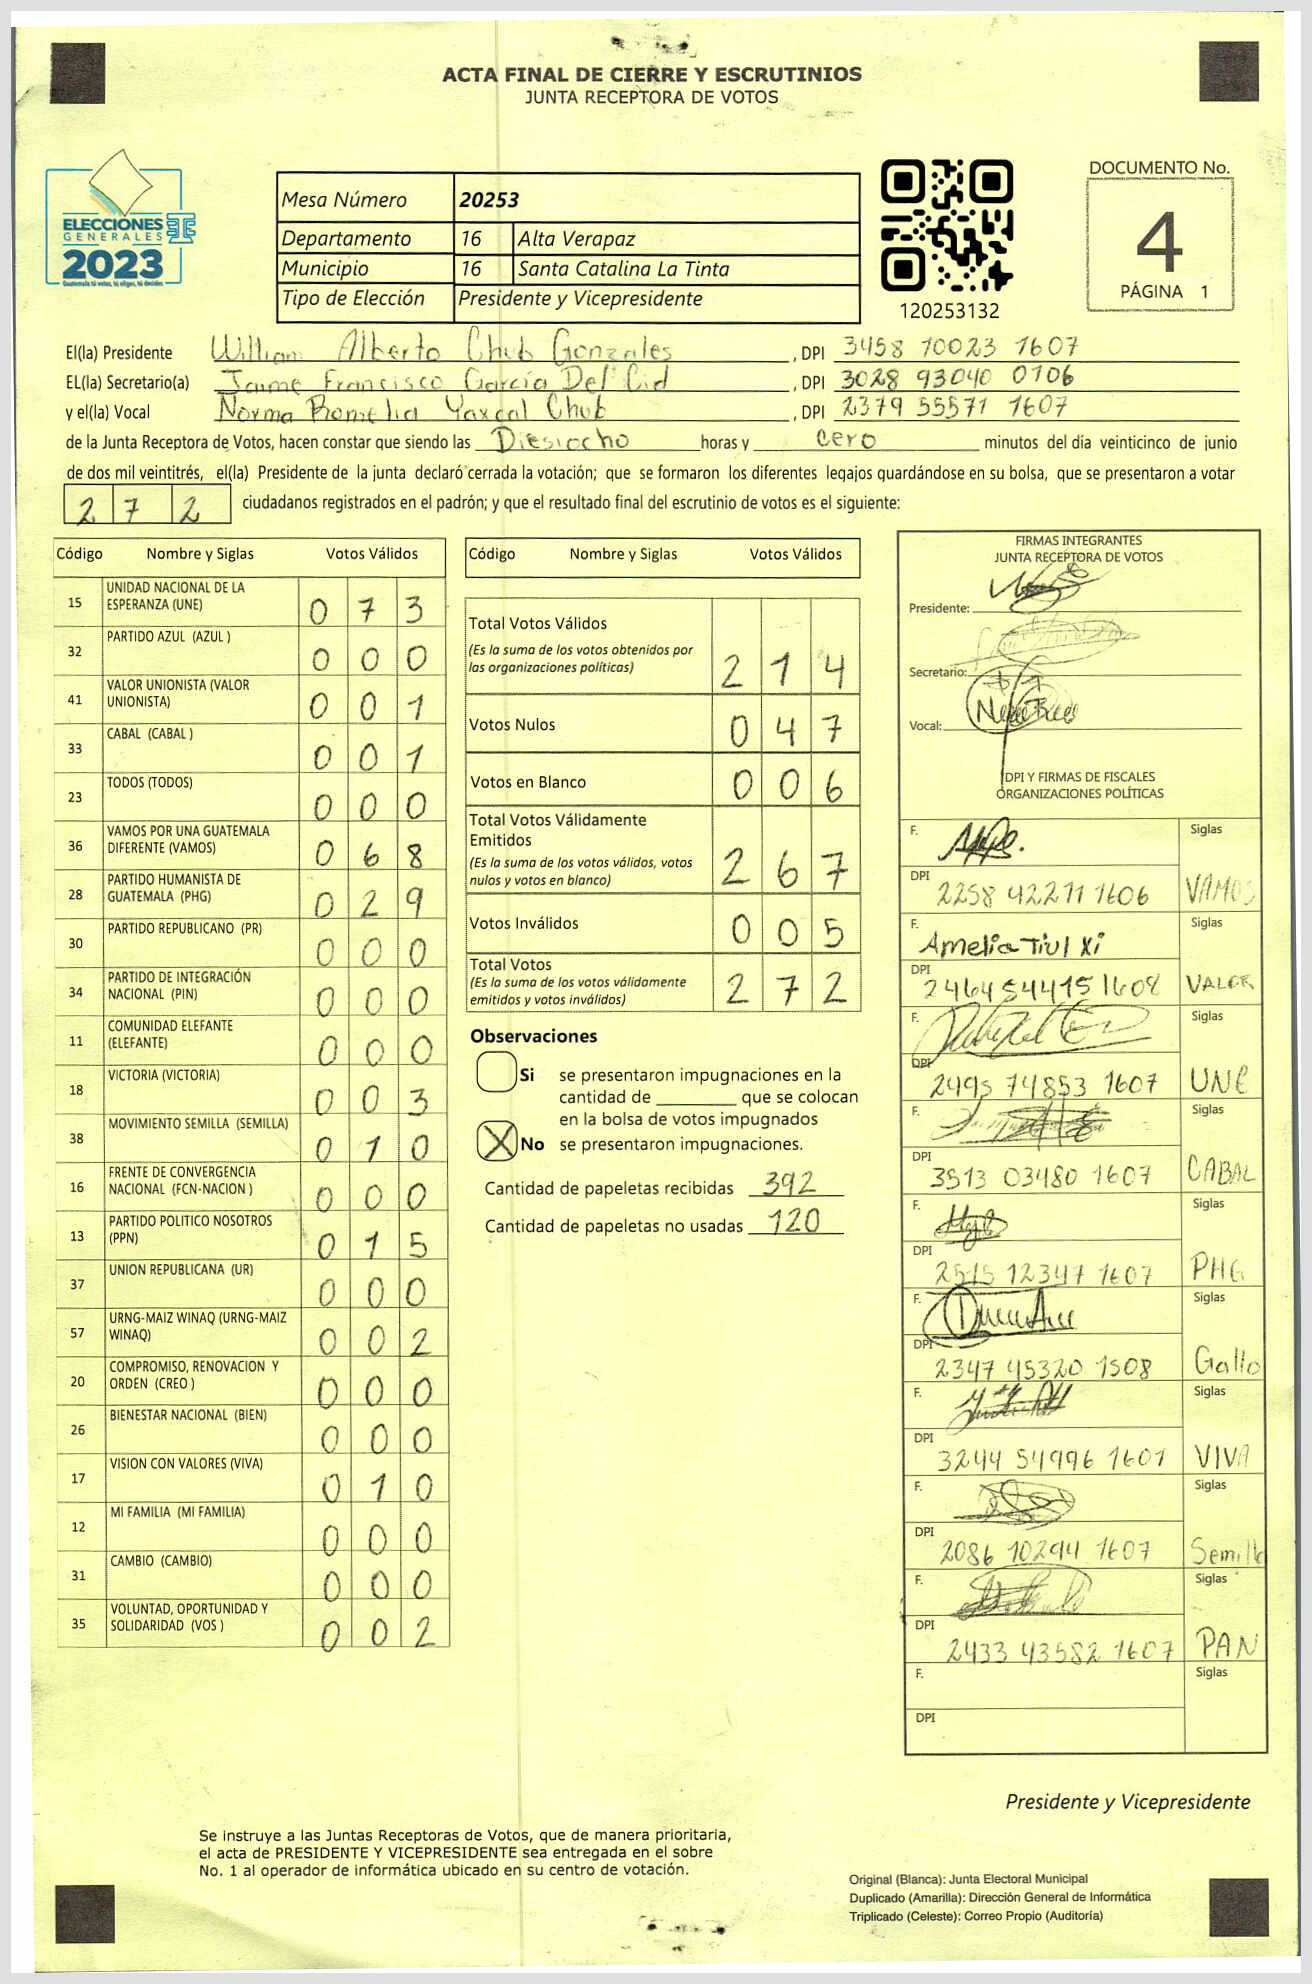 ACTA FINAL DE CIERRE Y ESCRUTINIOS
JUNTA RECEPTORA DE VOTOS
ELECCIONES
GENERALES
2023
Guatemala tú votas, tú eliges, tú decides
Mesa Número 20253
Departamento 16 Alta Verapaz
Municipio 16 Santa Catalina La Tinta
Tipo de Elección Presidente y Vicepresidente
120253132
DOCUMENTO No.
4
PÁGINA 1
El(la) Presidente William Alberto Chub Gonzales, DPI 3458 10023 1607
EL(la) Secretario(a) Jaime Francisco García Del Cid, DPI 3028 93040 0106
y el(la) Vocal Norma Romelia Yaxcal Chub, DPI 2379 55571 1607
de la Junta Receptora de Votos, hacen constar que siendo las Diesiocho horas y cero minutos del día veinticinco de junio
de dos mil veintitrés, el(la) Presidente de la junta declaró cerrada la votación; que se formaron los diferentes legajos guardándose en su bolsa, que se presentaron a votar
272 ciudadanos registrados en el padrón; y que el resultado final del escrutinio de votos es el siguiente:
Código Nombre y Siglas Votos Válidos
15 UNIDAD NACIONAL DE LA ESPERANZA (UNE) 0 7 3
32 PARTIDO AZUL (AZUL ) 0 0 0
41 VALOR UNIONISTA (VALOR UNIONISTA) 0 0 1
33 CABAL (CABAL ) 0 0 1
23 TODOS (TODOS) 0 0 0
36 VAMOS POR UNA GUATEMALA DIFERENTE (VAMOS) 0 6 8
28 PARTIDO HUMANISTA DE GUATEMALA (PHG) 0 2 9
30 PARTIDO REPUBLICANO (PR) 0 0 0
34 PARTIDO DE INTEGRACIÓN NACIONAL (PIN) 0 0 0
11 COMUNIDAD ELEFANTE (ELEFANTE) 0 0 0
18 VICTORIA (VICTORIA) 0 0 3
38 MOVIMIENTO SEMILLA (SEMILLA) 0 1 0
16 FRENTE DE CONVERGENCIA NACIONAL (FCN-NACION ) 0 0 0
13 PARTIDO POLITICO NOSOTROS (PPN) 0 1 5
37 UNION REPUBLICANA (UR) 0 0 0
57 URNG-MAIZ WINAQ (URNG-MAIZ WINAQ) 0 0 2
20 COMPROMISO, RENOVACION Y ORDEN (CREO ) 0 0 0
26 BIENESTAR NACIONAL (BIEN) 0 0 0
17 VISION CON VALORES (VIVA) 0 1 0
12 MI FAMILIA (MI FAMILIA) 0 0 0
31 CAMBIO (CAMBIO) 0 0 0
35 VOLUNTAD, OPORTUNIDAD Y SOLIDARIDAD (VOS ) 0 0 2
Código Nombre y Siglas Votos Válidos
Total Votos Válidos 2 1 4
(Es la suma de los votos obtenidos por
las organizaciones políticas)
Votos Nulos 0 4 7
Votos en Blanco 0 0 6
Total Votos Válidamente
Emitidos 2 6 7
(Es la suma de los votos válidos, votos
nulos y votos en blanco)
Votos Inválidos 0 0 5
Total Votos 2 7 2
(Es la suma de los votos válidamente
emitidos y votos inválidos)
Observaciones
Si se presentaron impugnaciones en la
cantidad de ________ que se colocan
en la bolsa de votos impugnados
X No se presentaron impugnaciones.
Cantidad de papeletas recibidas 392
Cantidad de papeletas no usadas 120
FIRMAS INTEGRANTES
JUNTA RECEPTORA DE VOTOS
Presidente:
Secretario:
Vocal:
DPI Y FIRMAS DE FISCALES
ORGANIZACIONES POLÍTICAS
F. Siglas
DPI 2258 42211 1606 VAMOS
F. Amelia Tiul Xi Siglas
DPI 2464 54415 1608 VALOR
F. Siglas
DPI 2495 74853 1607 UNE
F. Siglas
DPI 3513 03480 1607 CABAL
F. Siglas
DPI 2515 12347 1607 PHG
F. Siglas
DPI 2347 45320 1508 Gallo
F. Siglas
DPI 3244 54996 1601 VIVA
F. Siglas
DPI 2086 10294 1607 Semilla
F. Siglas
DPI 2433 43582 1607 PAN
F. Siglas
DPI
Presidente y Vicepresidente
Se instruye a las Juntas Receptoras de Votos, que de manera prioritaria,
el acta de PRESIDENTE Y VICEPRESIDENTE sea entregada en el sobre
No. 1 al operador de informática ubicado en su centro de votación.
Original (Blanca): Junta Electoral Municipal
Duplicado (Amarilla): Dirección General de Informática
Triplicado (Celeste): Correo Propio (Auditoría)